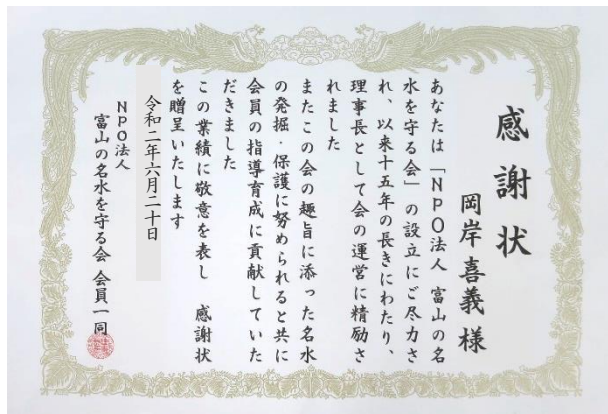 感謝状
岡岸喜義様
あなたは「NPO法人 富山の名
水を守る会」の設立にご尽力さ
れ、以来十五年の長きにわたり、
理事長として会の運営に精励さ
れました
またこの会の趣旨に添った名水
の発掘・保護に努められると共に
会員の指導育成に貢献していた
だきました
この業績に敬意を表し 感謝状
を贈呈いたします
令和二年六月二十日
NPO法人
富山の名水を守る会 会員一同